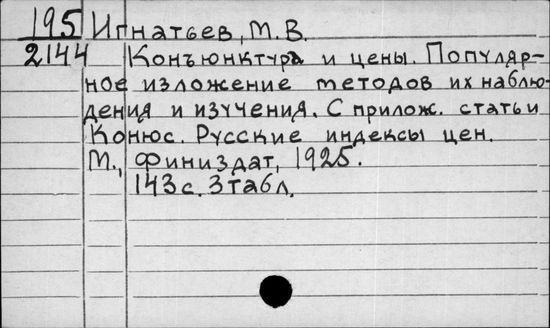 195 Игнатьев, М. В.
2144 Конъюнктура и цены. Популяр-
ное изложение методов их наблю-
дения и изучения. С прилож. статьи
Конюс. Русские индексы цен.
М., Финиздат, 1925.
143 с. 3 табл.